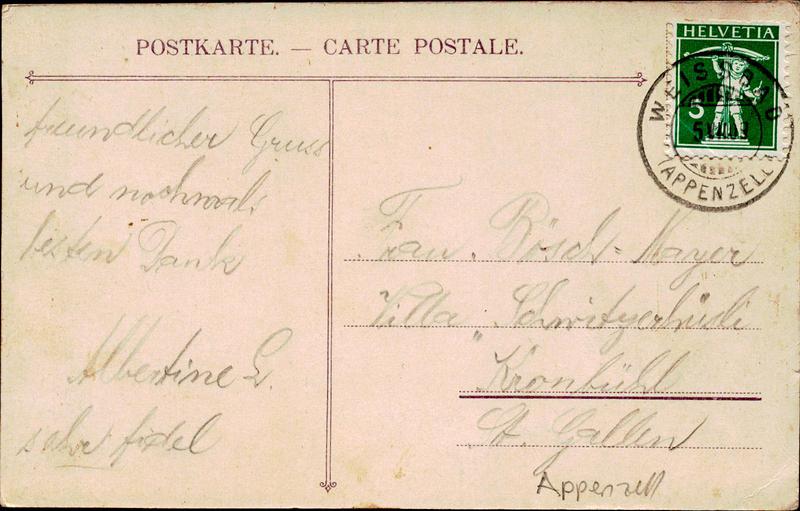 POSTKARTE. — CARTE POSTALE.
HELVETIA
5
WEISSBAD
5.VII.09
(APPENZELL)
freundlicher Gruss
und nochmals
besten Dank
Albertine L.
sehr fidel
Frau Bösch-Mayer
Villa „Schwitzerhüsli
Kronbühl
St. Gallen
Appenzell